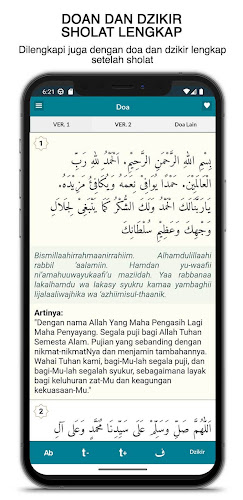 DOAN DAN DZIKIR
SHOLAT LENGKAP
Dilengkapi juga dengan doa dan dzikir lengkap
setelah sholat
6:21
Doa
VER. 1 VER. 2 Doa Lain
1
بِسْمِ اللهِ الرَّحْمَنِ الرَّحِيْمِ. اَلْحَمْدُ لِلهِ رَبِّ
الْعَالَمِيْنَ. حَمْدًا يُوَافِيْ نِعَمَهُ وَيُكَافِئُ مَزِيْدَهُ.
يَارَبَّنَالَكَ الْحَمْدُ وَلَكَ الشُّكْرُ كَمَا يَنْبَغِيْ لِجَلَالِ
وَجْهِكَ وَعَظِيْمِ سُلْطَانِكَ
Bismillaahirrahmaanirrahiim. Alhamdulillaahi
rabbil 'aalamiin. Hamdan yu-waafii
ni'amahuuwayukaafi'u maziidah. Yaa rabbanaa
lakalhamdu wa lakasy syukru kamaa yambaghii
lijalaaliwajhika wa 'azhiimisul-thaanik.
Artinya:
"Dengan nama Allah Yang Maha Pengasih Lagi
Maha Penyayang. Segala puji bagi Allah Tuhan
Semesta Alam. Pujian yang sebanding dengan
nikmat-nikmatNya dan menjamin tambahannya.
Wahai Tuhan kami, bagi-Mu-lah segala puji, dan
bagi-Mu-lah segalah syukur, sebagaimana layak
bagi keluhuran zat-Mu dan keagungan
kekuasaan-Mu."
2
اَللّٰهُمَّ صَلِّ وَسَلِّمْ عَلَى سَيِّدِنَا مُحَمَّدٍ وَعَلَى آلِ
Ab t- t+ ف Dzikir